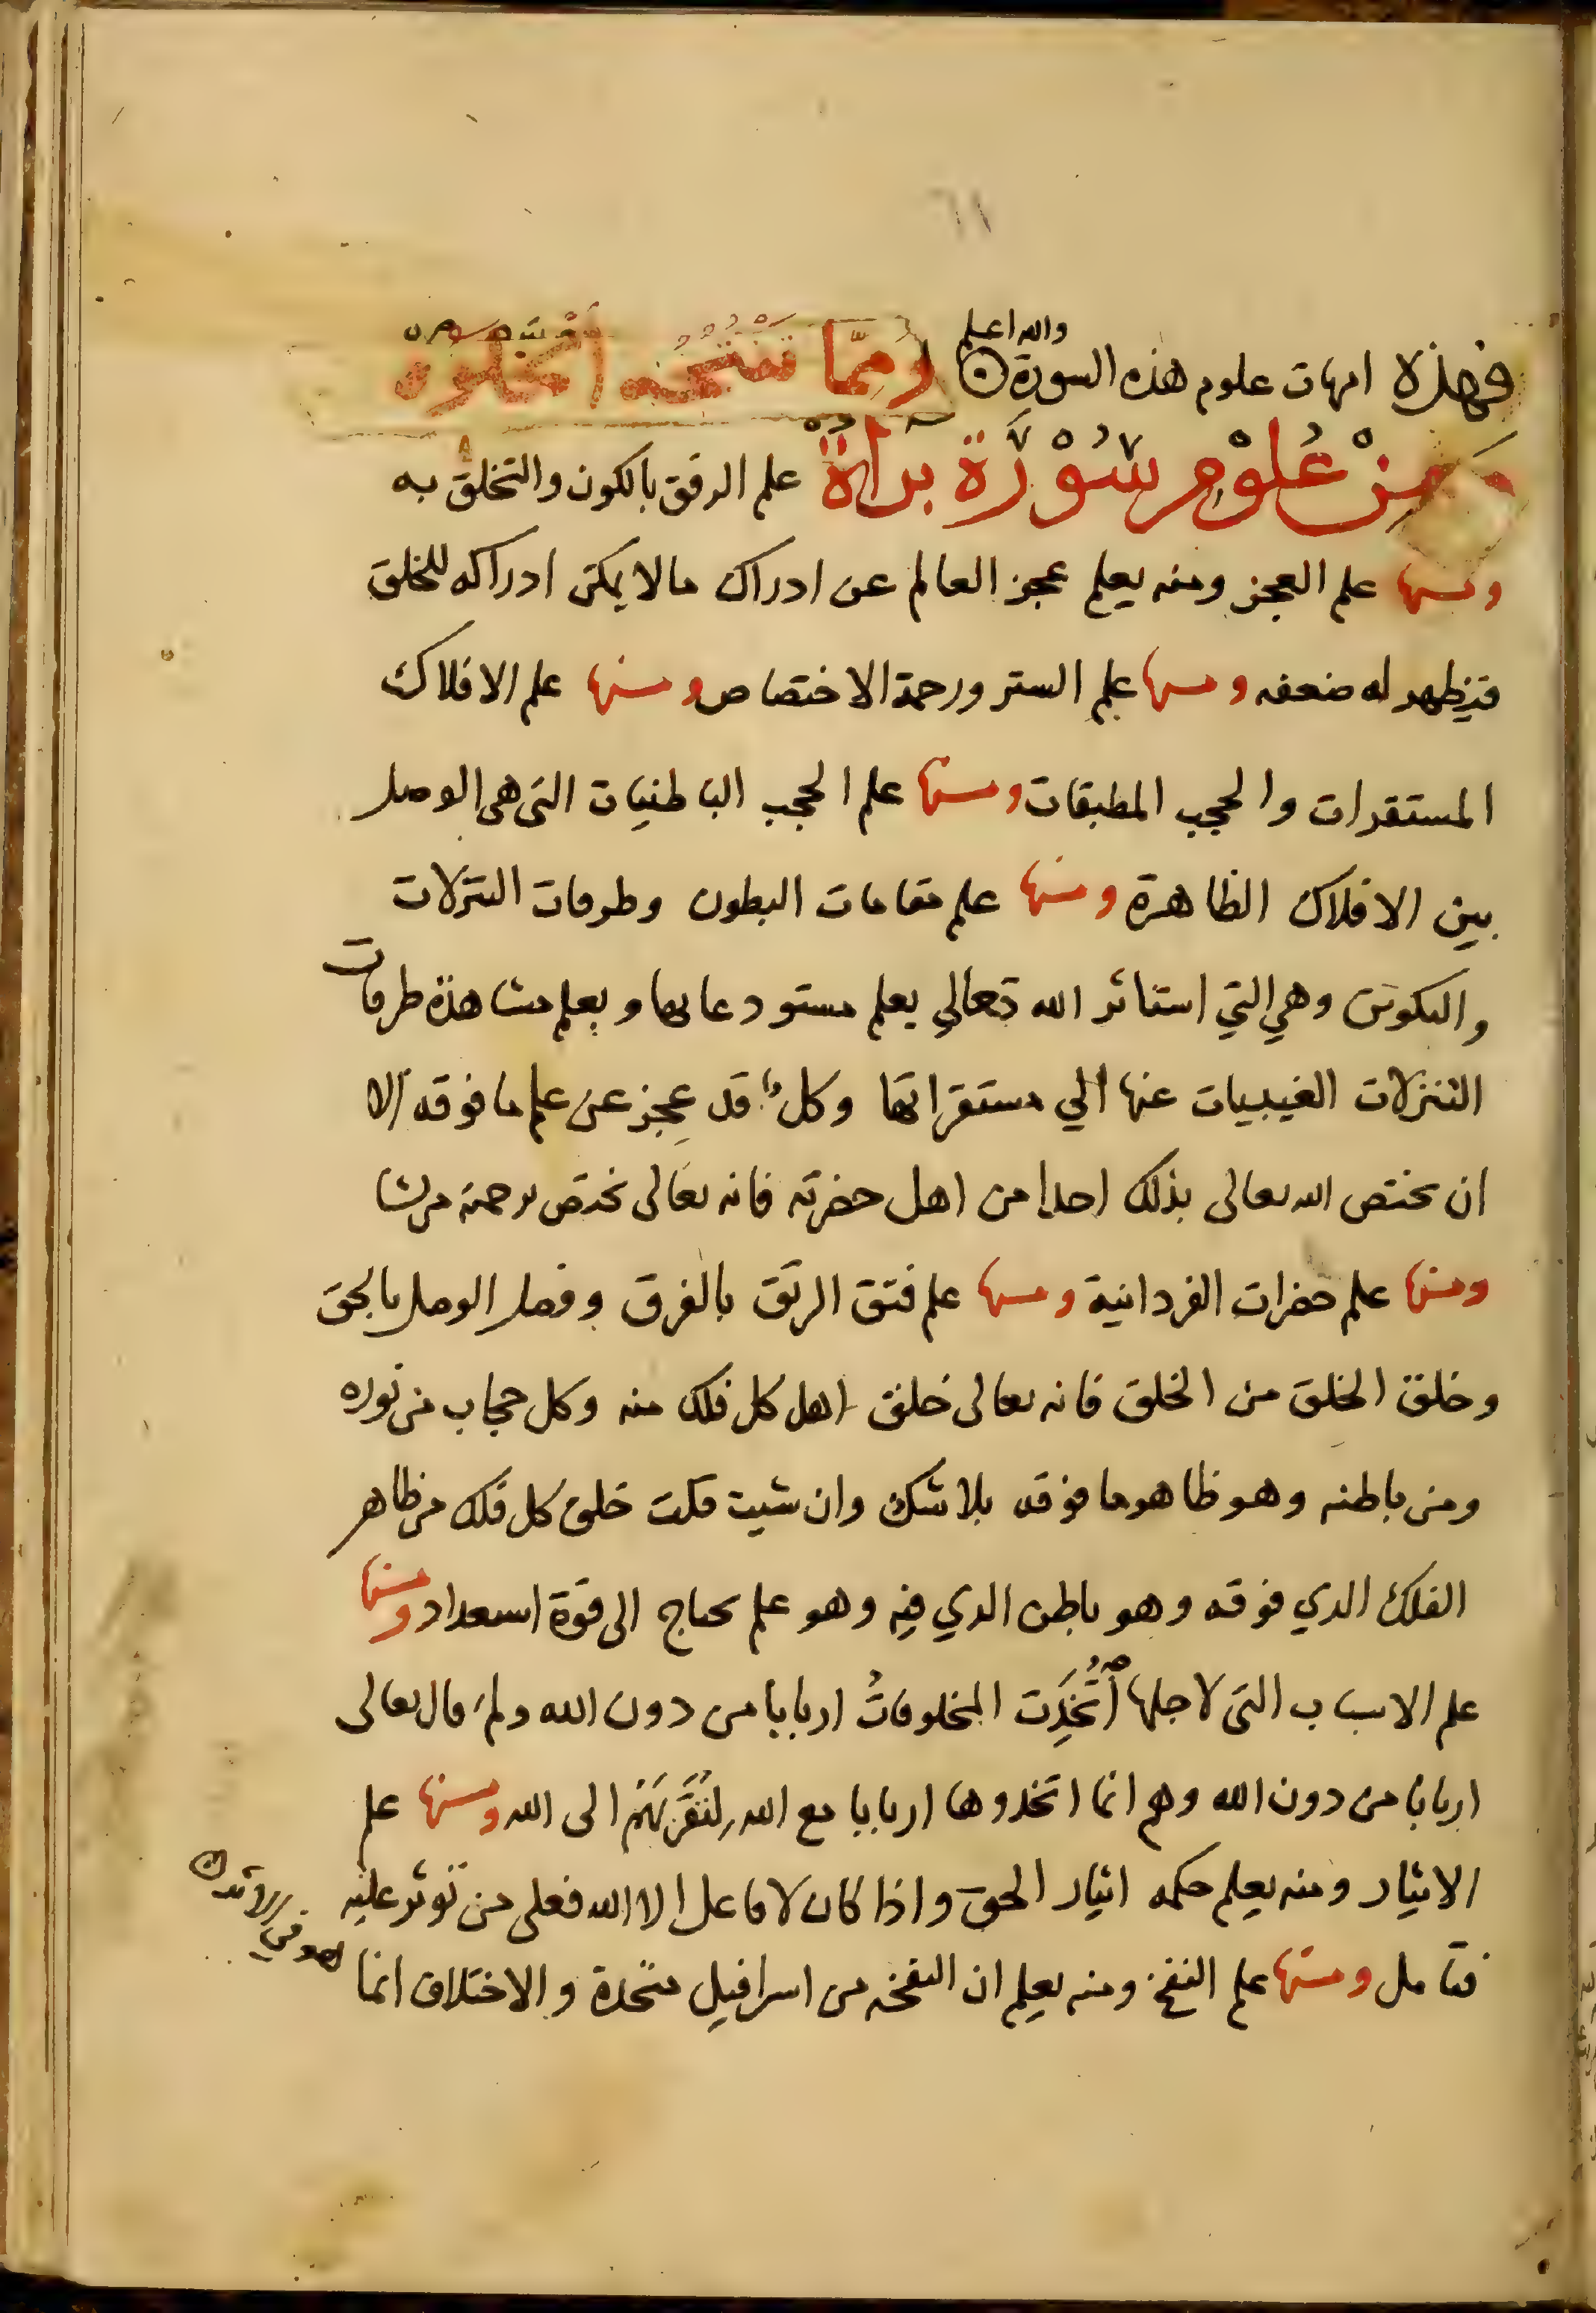 ٦١
فهذه امهات علوم هذه السورة والله اعلم ومما تنتجه الخلوة
من علوم سورة براة علم الرفق بالكون والتخلق به
ومنها علم العجز ومنه يعلم عجز العالم عن ادراك ما لا يمكن ادراكه للخلق
فيظهر له ضعفه ومنها علم الستر ورحمة الاختصاص ومنها علم الافلاك
المستقرات والحجب المطبقات ومنها علم الحجب الباطنيات التى هى الوصل
بين الافلاك الظاهرة ومنها علم مقامات البطون وطرقات التنزلات
والتكوين وهي التي استاثر الله تعالي بعلم مستودعاتها وبعلم مشاهدة طرقات
التنزلات الغيبيات عنها الي مستقراتها وكل قد عجز عن علم ما فوقه الا
ان يختص الله تعالى بذلك احدا من اهل حضرته فانه تعالى يختص برحمته من يشا
ومنها علم حضرات الفردانية ومنها علم فتق الرتق بالفرق وفصل الوصل بالحق
وخلق الخلق من الخلق فانه تعالى خلق اهل كل فلك منه وكل حجاب من نوره
ومن باطنه وهو ظاهر ما فوقه بلا شك وان شيت قلت خلق كل فلك من ظاهر
الفلك الذي فوقه وهو باطن الذي فيه وهو علم يحتاج الى قوة استعداد ومنها
علم الاسباب التى لاجلها اتُّخِذَت المخلوقاتُ اربابا من دون الله ولم قال تعالى
اربابا من دون الله وهم انما اتخذوها اربابا مع الله لتقربهم الى الله ومنها علم
الايثار ومنه يعلم حكمه ايثار الحق واذا كان لا فاعل الا الله فعلى من توثر عليه
فتامل ومنها علم النفخ ومنه يعلم ان النفخه من اسرافيل متحدة والاختلاف انما